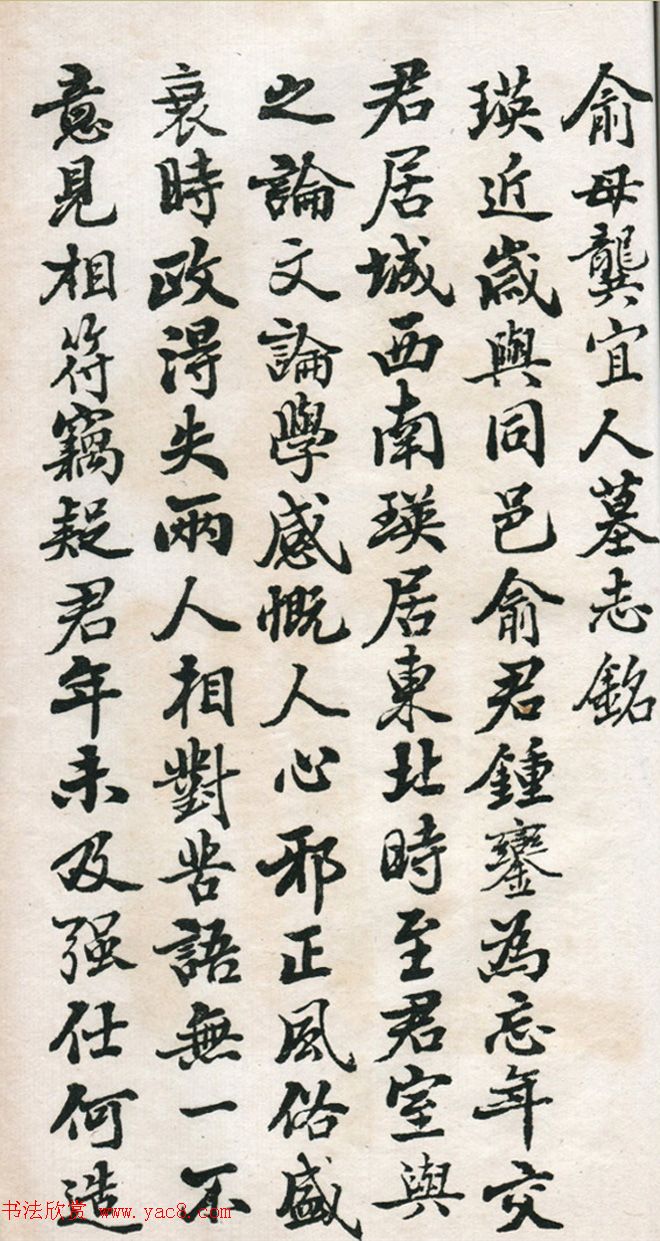 俞母龔宜人墓志銘
瑛近歲與同邑俞君鍾鑾為忘年交
君居城西南瑛居東北時至君室與
之論文論學感慨人心邪正風俗盛
衰時政得失兩人相對苦語無一不
意見相符竊疑君年未及强仕何造
书法欣赏 www.yac8.com